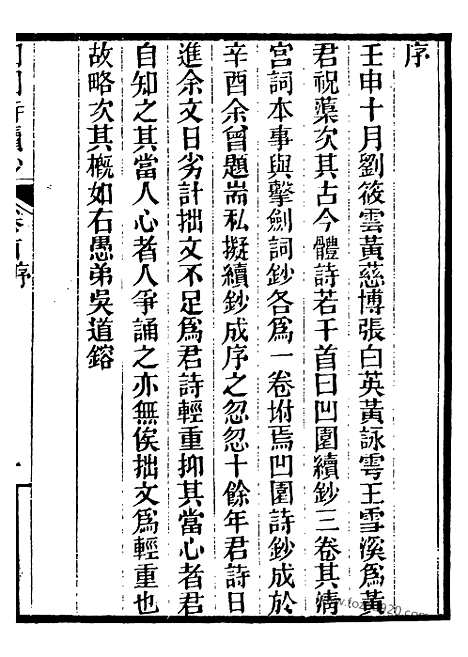 序
壬申十月劉筱雲黃慈博張白英黃詠雩王雪溪爲黃
君祝蕖次其古今體詩若干首曰凹園續鈔三卷其淸
宮詞本事與擊劍詞鈔各爲一卷坿焉凹園詩鈔成於
辛酉余曾題耑私擬續鈔成序之忽忽十餘年君詩日
進余文日劣計拙文不足爲君詩輕重抑其當心者君
自知之其當人心者人爭誦之亦無俟拙文爲輕重也
故略次其概如右愚弟吳道鎔
凹園詩續鈔
卷首序
一
www.tozhao2020.com